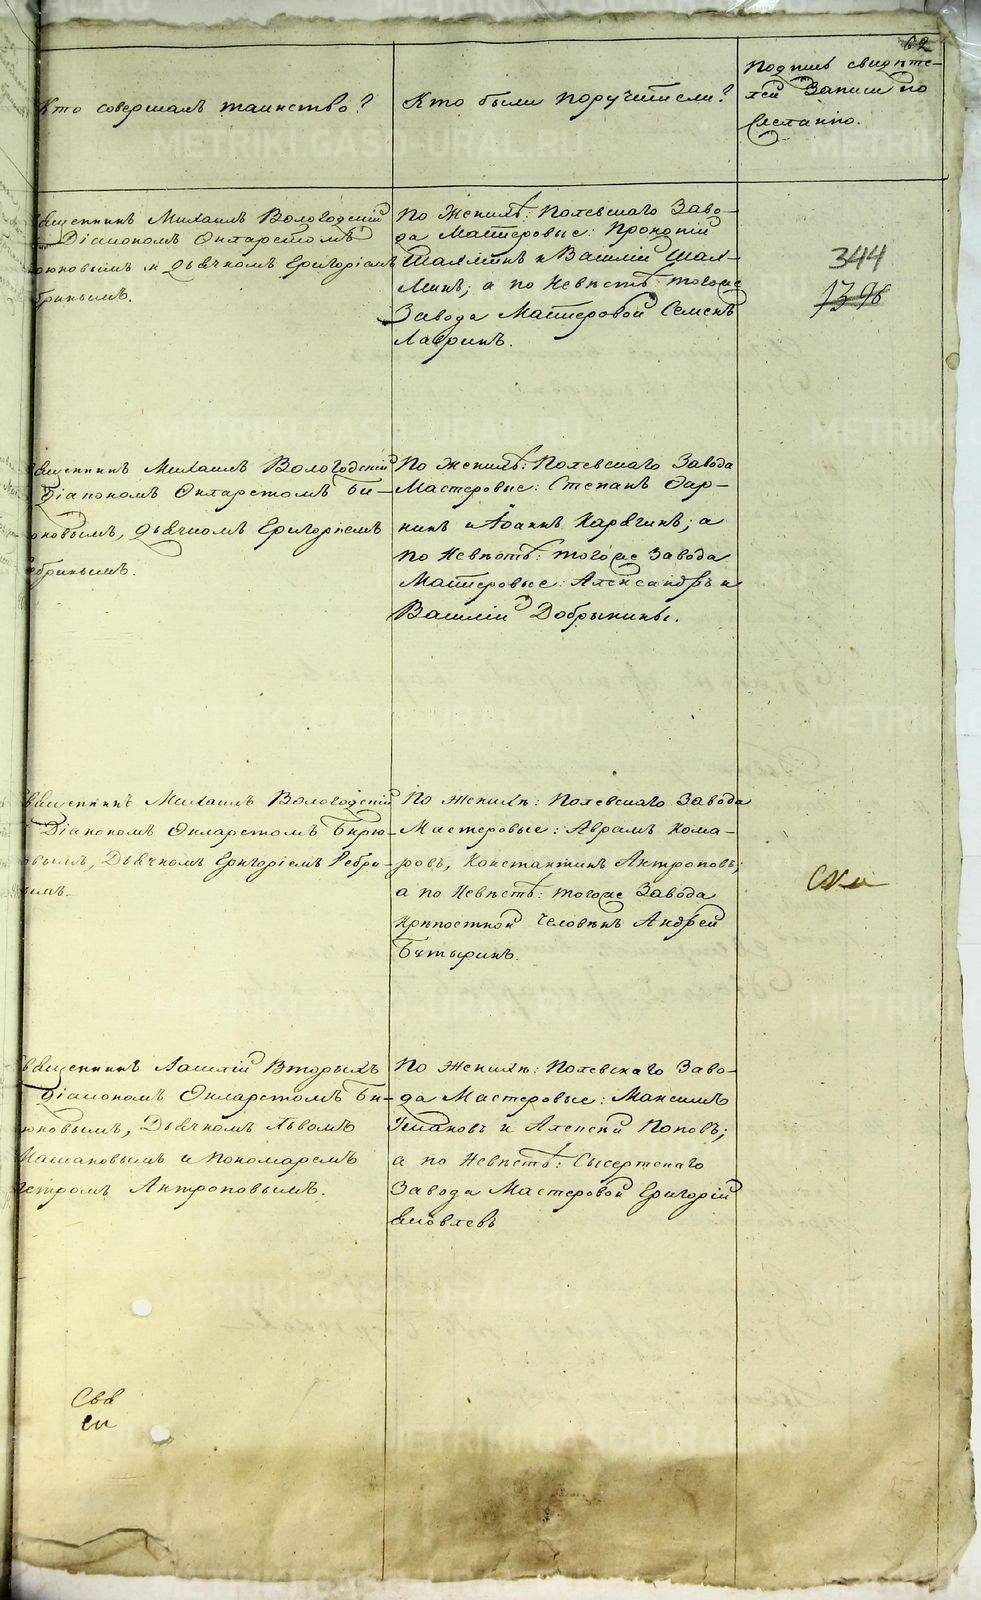 62
Кто совершалъ таинство?
Кто были поручители?
Подпись свидѣте-
лей записи по
желанію.
Священникъ Михаилъ Вологодскій
Діакономъ Онларетомъ
рюковымъ и дьячкомъ Григоріемъ
бринымъ.
По Женихѣ: Полевскаго Заво-
да Мастеровые: Прокопій
Шахминъ и Василій Шах-
минъ; а по Невѣстѣ: тогоже
Завода Мастеровой Семенъ
Лавринъ.
344
1398
Священникъ Михаилъ Вологодскій
Діакономъ Онларетомъ Би-
рюковымъ, дьячкомъ Григоріемъ
Ребринымъ.
По Женихѣ: Полевскаго Завода
Мастеровые: Степанъ Зар-
нинъ и Іоаннъ Карягинъ; а
по Невѣстѣ: тогоже Завода
Мастеровые: Александръ и
Василій Добрынины.
Священникъ Михаилъ Вологодскій
Діакономъ Онларетомъ Бирю-
ковымъ, Дьячкомъ Григоріемъ Ребри-
нымъ.
По Женихѣ: Полевскаго Завода
Мастеровые: Аврамъ Кома-
ровъ, Константинъ Антроповъ;
а по Невѣстѣ: тогоже Завода
Крѣпостной человѣкъ Андрей
Бутыринъ.
Священникъ Василій Вторыхъ
Діакономъ Онларетомъ Би-
рюковымъ, Дьячкомъ Львомъ
и Пономаремъ
Петромъ Антроповымъ.
По Женихѣ: Полевскаго Заво-
да Мастеровые: Максимъ
Ушаковъ и Алексей Поповъ;
а по Невѣстѣ: Сысертскаго
Завода Мастеровой Григорій
Яковлевъ
METRIKI.GASO-URAL.RU